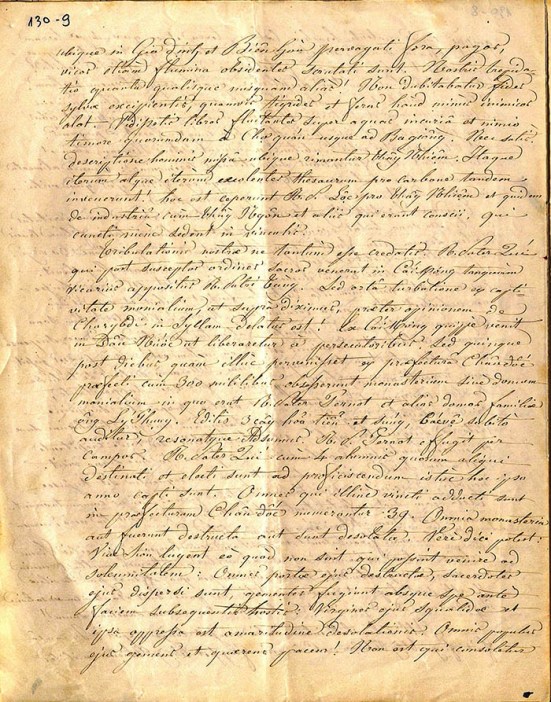 130-9
ubique in Gia định et Biên hòa pervagati fora, pagos,
vicos etiam flumina obsidentes scrutati sunt. Nostri
tio quanta qualisque nusquam alias! Non dubitabatur fides
sylvæ excipientes quamvis tigrides et feras haud minus inimicas
alat. liberè fluitante super aquas incuria et nimis
timore quorumdam à Chợ quán usque ad Nec satis,
descriptione hominis missa ubique rimantur thầy Nhiệm. Itaque
iterum atque iterum thesaurum pro carbone tandem
invenerunt: hoc est ceperunt R. P. Lộc pro thầy Nhiệm et quidem
de industria cum thầy et alios qui erant conscii, qui
cuncti nunc sedent in vinculis.
Tribulationis nostræ ne tantum esse credatis. R. Pater Quí
qui post susceptos ordines sacros venerat in tanquam
vicarius appositus R. Patri Tùng. Sed orta turbatione et capti-
vitate monialium, ut supra diximus, præter opinionem de
Charybdi in Syllam delatus est! Ex quippe venit
in Đầu Nước ut liberaretur à persecutoribus sed quinque
post diebus quàm illuc pervenisset ex præfectura Châu đốc
præfecti cum 300 militibus obsederunt monasterium sive domum
monialium in quo erat R. Pater Pernot et alias domos familiæ
ông Lý Thung. Editis 3 cây hỏa tiễn et súng, subito
auditur, resonatque R. P. Pernot effugit per
campos. R. Pater Quí cum 4 alumnis quorum aliqui
destinati et electi sunt ad proficiscendum istuc hoc ipso
anno capti sunt. Omnes qui illinc vincti adducti sunt
in præfecturam Châu đốc numerantur 39. Omnia monasteria
aut fuerunt destructa aut sunt desolata. Verè dici potest:
Viæ Sion lugent eò quod non sint qui possint venire ad
solemnitatem: Omnes portæ ejus destructæ, sacerdotes
ejus dispersi sunt, gementes fugiunt absque spe ante
faciem subsequentis hostis. Virgines ejus squalidæ et
ipsa oppressa est amaritudine desolationis. Omnis populus
ejus gemens et quærens panem! Non est qui consoletur